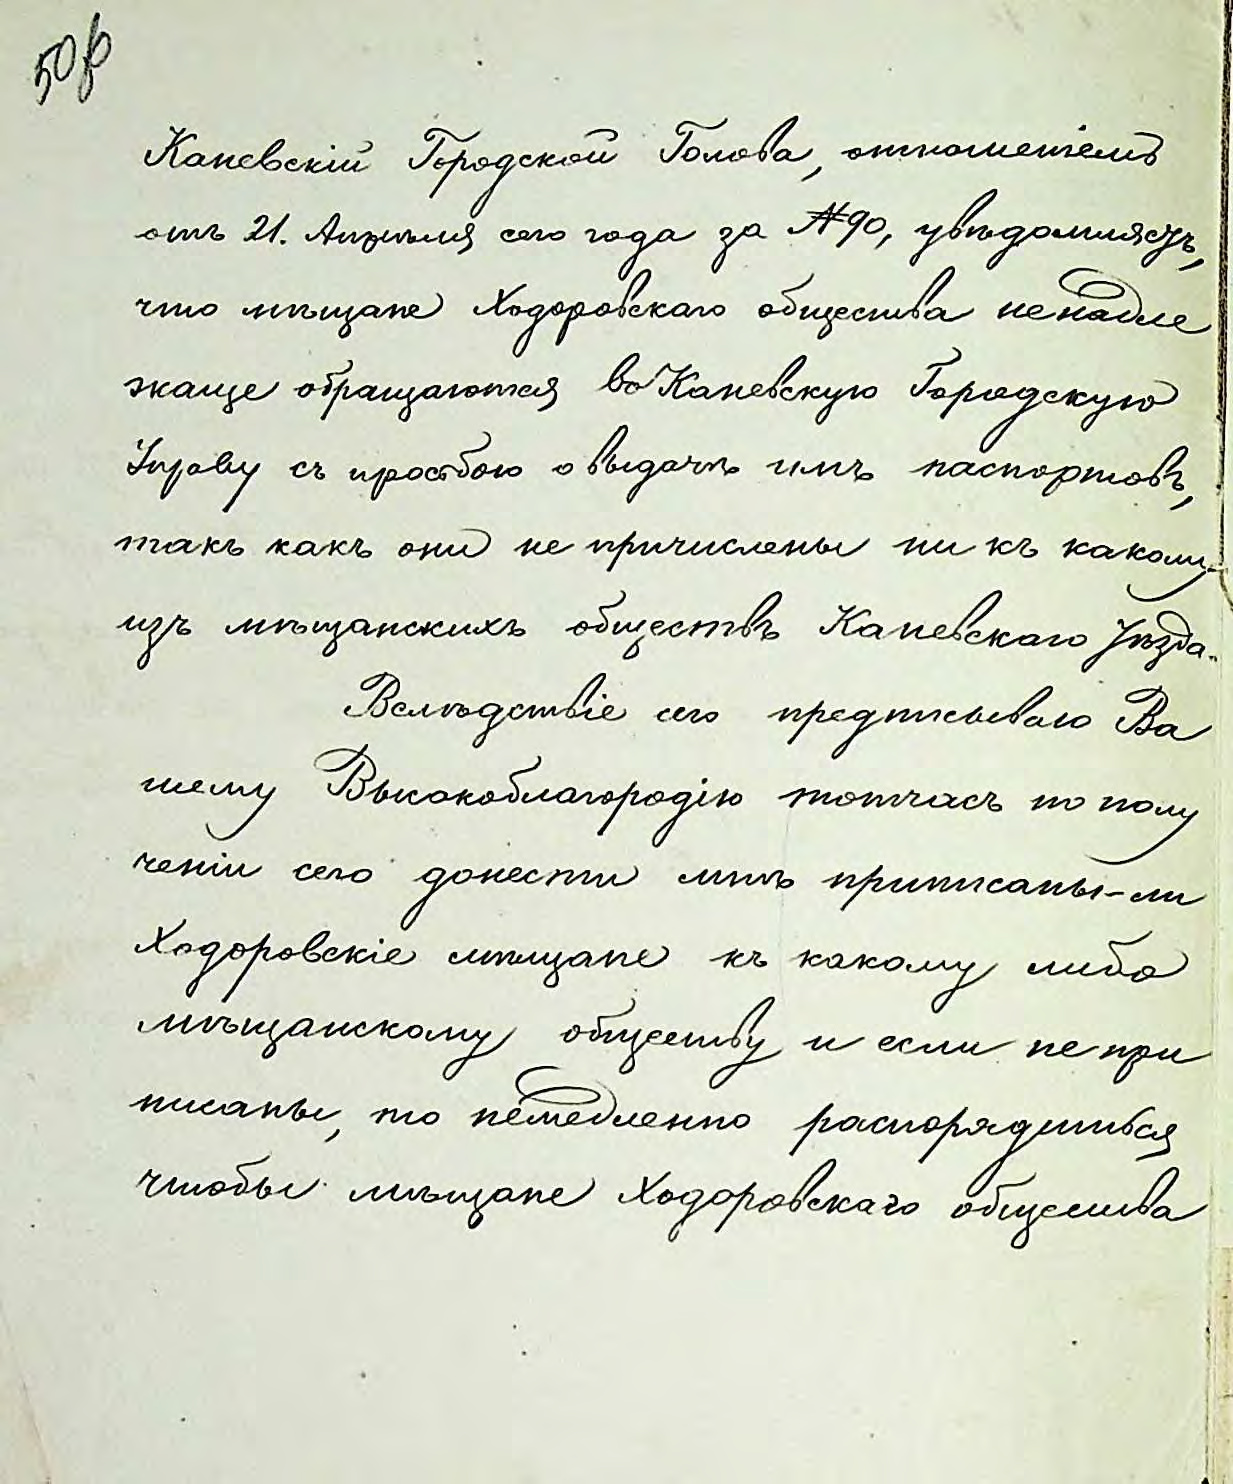 Каневскій Городской Голова, отношеніемъ
отъ 21. Апрѣля сего года за №90, увѣдомляетъ,
что мѣщане Ходоровскаго общества ненадле
жаще обращаются во Каневскую Городскую
Управу съ просьбою о выдачѣ имъ паспортовъ,
такъ какъ они не причислены ни къ какому-
изъ мѣщанскихъ обществъ Каневскаго Уѣзда.
Вслѣдствіе сего предписываю Ва
шему Высокоблагородію тотчасъ по полу
ченіи сего донести мнѣ приписаны-ли
Ходоровскіе мѣщане къ какому либо
мѣщанскому обществу и если не при
писаны, то немедленно распорядиться
чтобы мѣщане Ходоровскаго общества